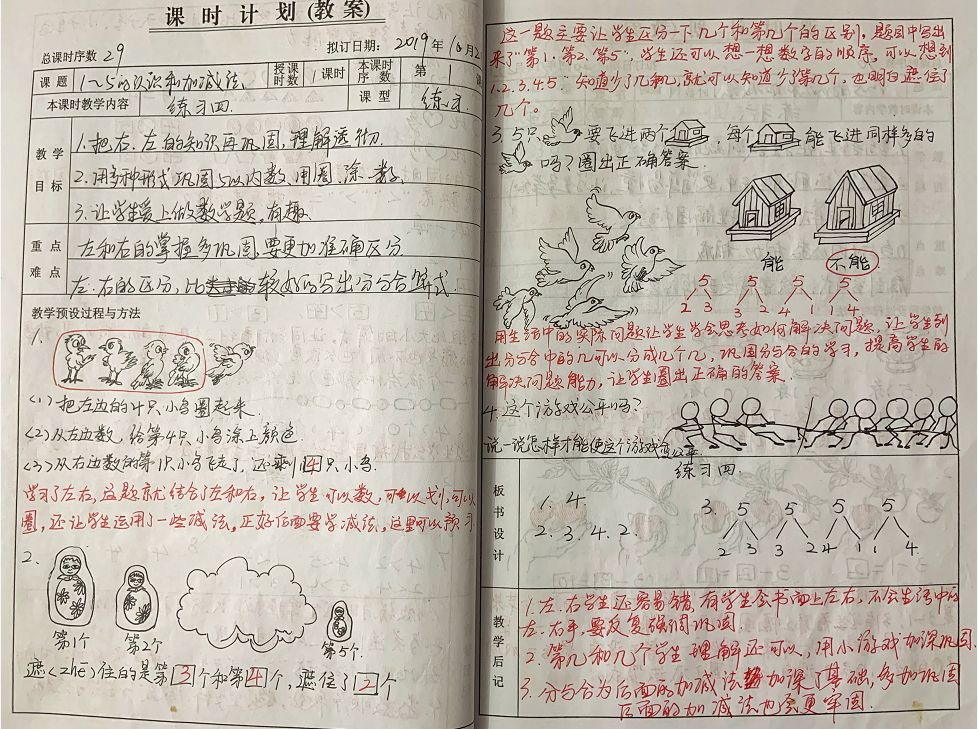 课 时 计 划 (教 案)
总课时序数 29
拟订日期： 2019年10月2
课 题 1~5的认识和加减法
授课时数 1课时 本课时序数 第 1
本课时教学内容 练习四. 课 型 练习.
教 学 目 标
1.把右、左的知识再巩固,理解透彻.
2.用多种形式巩固5以内数,用圈、涂、数.
3.让学生爱上做数学题,有趣.
重 点 左和右的掌握多巩固,要更加准确区分
难 点 左、右的区分,比较好的写出分与合算式.
教学预设过程与方法
1.
(1)把左边的4只小鸟圈起来.
(2)从左边数,给第4只小鸟涂上颜色.
(3)从右边数的第1只小鸟飞走了,还剩4只小鸟.
学习了左右,这题就结合了左和右,让学生可以数,可以划,可以
圈,还让学生运用了一些减法,正好后面要学减法,这里可以预习
2.
第1个 第2个 第5个.
遮<zhē>住的是第3个和第4个,遮住了2个
这一题主要让学生区分一下几个和第几个的区别,题目中写出
来了"第1、第2、第5",学生还可以想一想数字的顺序,可以想到
1.2.3.4.5.知道少了几和几,就可以知道少了第几个,也明白遮住了
几个。
3. 5只 要飞进两个 ,每个 能飞进同样多的
吗?圈出正确答案.
能 不能
5 5 5 5
2 3 3 2 4 1 1 4
用生活中的实际问题让学生学会思考如何解决问题,让学生列
出分与合中的几可以分成几个几,巩固分与合的学习,提高学生的
解决问题能力,让学生圈出正确的答案.
4.这个游戏公平吗?
说一说怎样才能使这个游戏公平.
板 书 设 计
练习四
1. 4.
2. 3. 4. 2.
3. 5 5 5 5
2 3 3 2 4 1 1 4.
教 学 后 记
1.左、右学生还容易错,有学生会书面上左右,不会生活中的
左、右手,要反复强调巩固.
2.第几和几个学生理解还可以,用小游戏加深巩固.
3.分与合为后面的加减法加深了基础,多加巩固
后面的加减法也会更牢固.